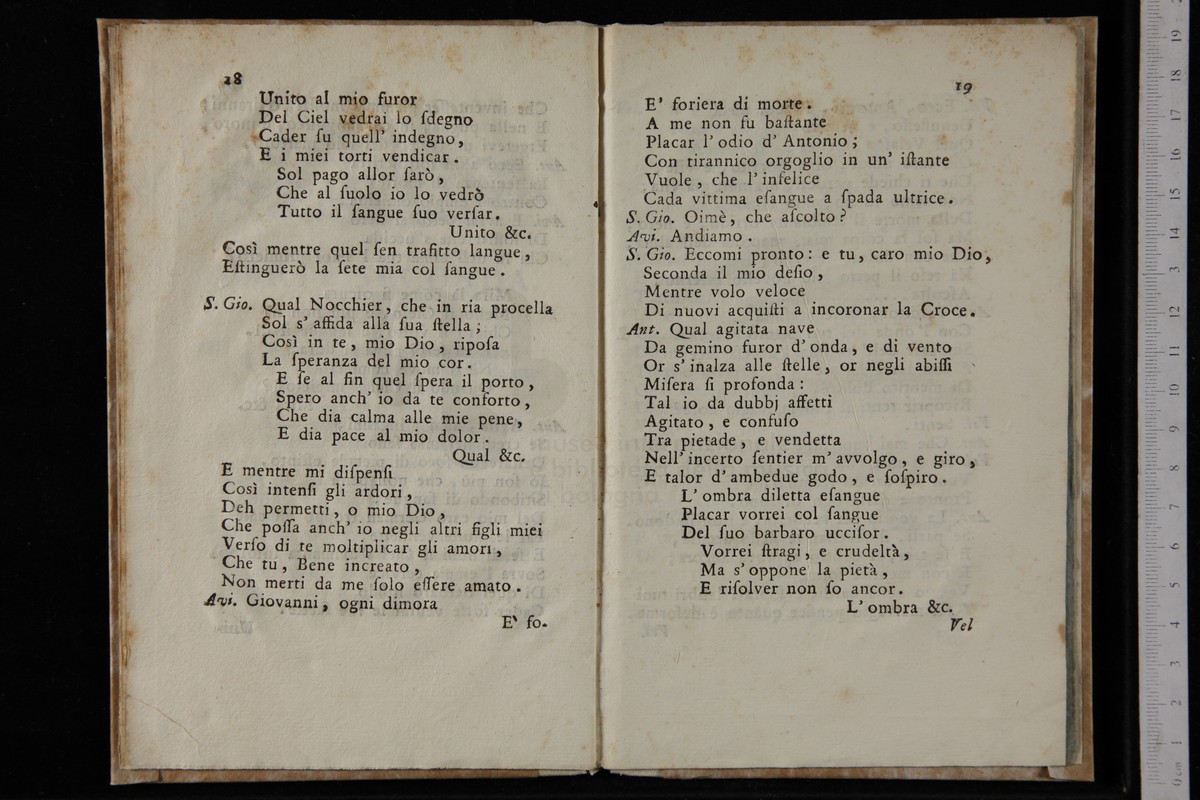 18
Unito al mio furor
Del Ciel vedrai lo ſdegno
Cader ſu quell' indegno,
E i miei torti vendicar.
Sol pago allor ſarò,
Che al ſuolo io lo vedrò
Tutto il ſangue ſuo verſar.
Unito &c.
Così mentre quel ſen trafitto langue,
Eſtinguerò la ſete mia col ſangue.
S. Gio. Qual Nocchier, che in ria procella
Sol s' affida alla ſua ſtella;
Così in te, mio Dio, ripoſa
La ſperanza del mio cor.
E ſe al fin quel ſpera il porto,
Spero anch' io da te conforto,
Che dia calma alle mie pene,
E dia pace al mio dolor.
Qual &c.
E mentre mi diſpenſi
Così intenſi gli ardori,
Deh permetti, o mio Dio,
Che poſſa anch' io negli altri figli miei
Verſo di te moltiplicar gli amori,
Che tu, Bene increato,
Non merti da me ſolo eſſere amato.
Avi. Giovanni, ogni dimora
E' fo-
19
E' foriera di morte.
A me non fu baſtante
Placar l' odio d' Antonio;
Con tirannico orgoglio in un' iſtante
Vuole, che l' infelice
Cada vittima eſangue a ſpada ultrice.
S. Gio. Oimè, che aſcolto?
Avi. Andiamo.
S. Gio. Eccomi pronto: e tu, caro mio Dio,
Seconda il mio deſio,
Mentre volo veloce
Di nuovi acquiſti a incoronar la Croce.
Ant. Qual agitata nave
Da gemino furor d' onda, e di vento
Or s' inalza alle ſtelle, or negli abiſſi
Miſera ſi profonda:
Tal io da dubbj affetti
Agitato, e confuſo
Tra pietade, e vendetta
Nell' incerto ſentier m' avvolgo, e giro,
E talor d' ambedue godo, e ſoſpiro.
L' ombra diletta eſangue
Placar vorrei col ſangue
Del ſuo barbaro ucciſor.
Vorrei ſtragi, e crudeltà,
Ma s' oppone la pietà,
E riſolver non ſo ancor.
L' ombra &c.
Vel